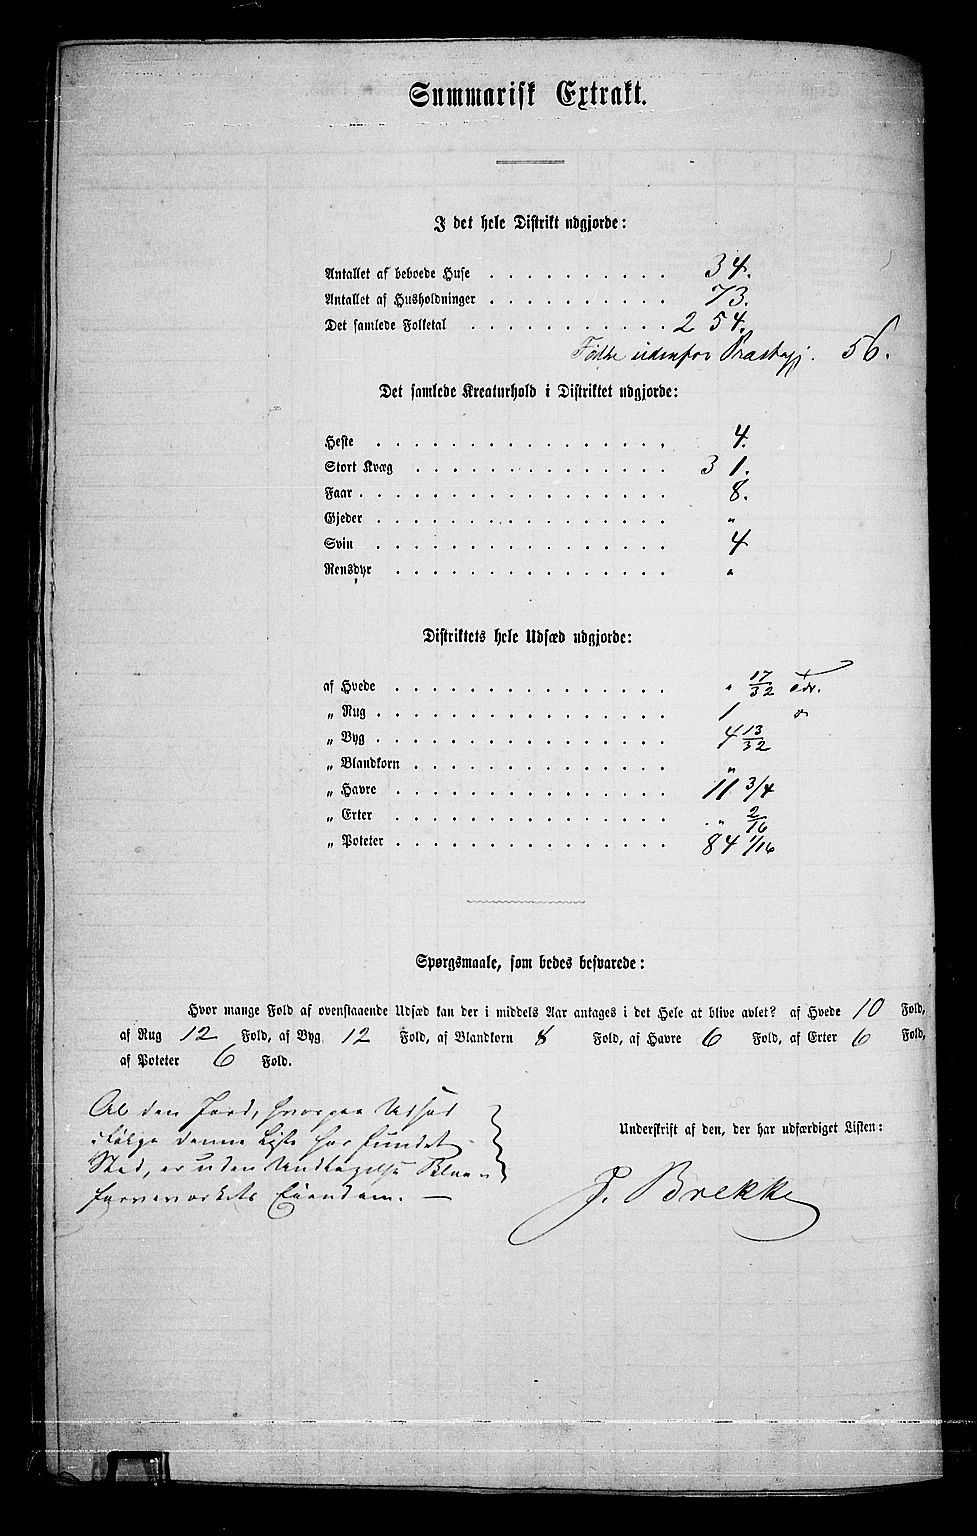 Summarisk Extrakt.
I det hele Distrikt udgjorde:
Antallet af beboede Huse . . . . . . . . . . 34.
Antallet af Husholdninger . . . . . . . . . . 73.
Det samlede Folketal . . . . . . . . . . . 254.
Fødte udenfor Præstegj. 56.
Det samlede Kreaturhold i Distriktet udgjorde:
Heste . . . . . . . . . . . . . . . . 4.
Stort Kvæg . . . . . . . . . . . . . . 31.
Faar . . . . . . . . . . . . . . . . . 8.
Gjeder . . . . . . . . . . . . . . . . "
Svin . . . . . . . . . . . . . . . . 4
Rensdyr . . . . . . . . . . . . . . . "
Distriktets hele Udsæd udgjorde:
af Hvede . . . . . . . . . . . . . . . " 17/32 Tdr.
„ Rug . . . . . . . . . . . . . . . . 1 "
„ Byg . . . . . . . . . . . . . . . . 4 13/32
„ Blandkorn . . . . . . . . . . . . . "
„ Havre . . . . . . . . . . . . . . . 11 3/4
„ Erter . . . . . . . . . . . . . . . " 2/16
„ Poteter . . . . . . . . . . . . . . . 84 1/16
Spørgsmaale, som bedes besvarede:
Hvor mange Fold af ovenstaaende Udsæd kan der i middels Aar antages i det Hele at blive avlet? af Hvede 10 Fold,
af Rug 12 Fold, af Byg 12 Fold, af Blandkorn 8 Fold, af Havre 6 Fold, af Erter 6 Fold,
af Poteter 6 Fold.
Al den Jord, hvorpaa Udsæd
ifølge denne Liste har fundet
Sted, er uden Undtagelse Blaa-
farveværkets Eiendom. —
Underskrift af den, der har udfærdiget Listen:
P. Brekke